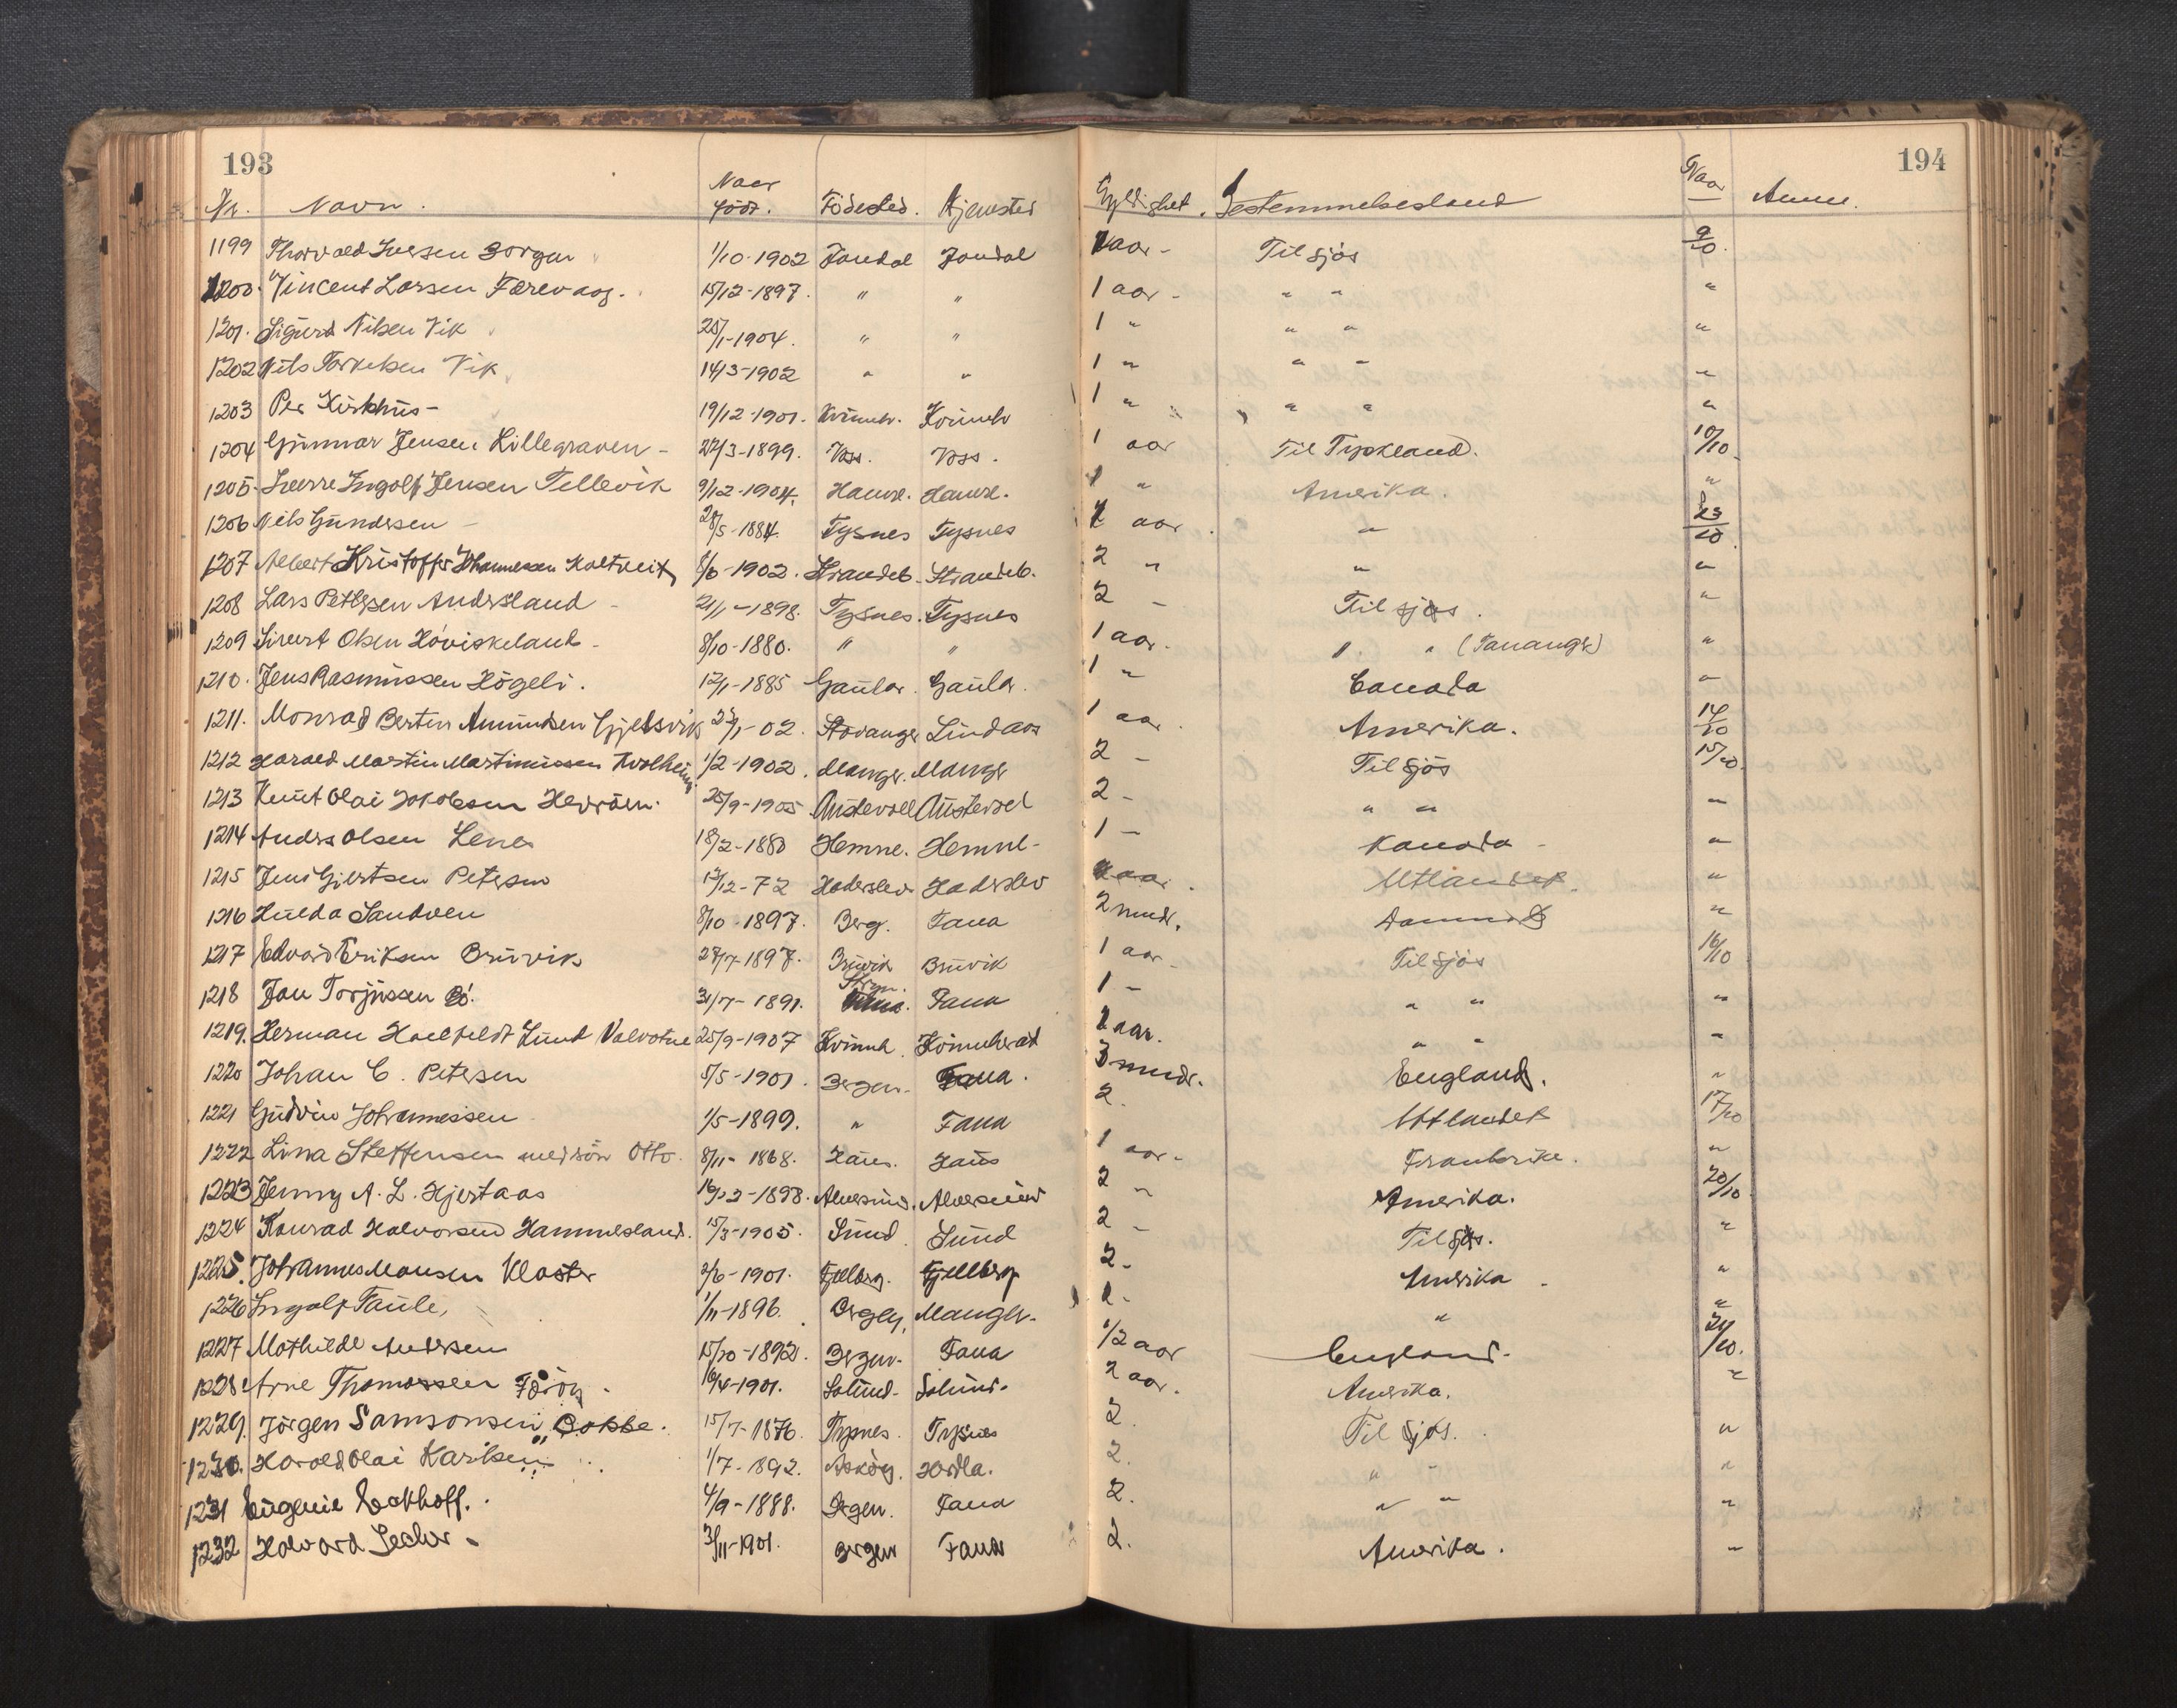 193 194
Nr. Navn. Naar född. Födested. Hjemsted Gyldighet. Bestemmelsesland Naar Anm.
1199 Thorvald Iversen Borgen 1/10-1902 Jondal Jondal 1 aar - Til sjös 9/10.
1200. Vincent Larsen Færevaag. 15/12-1897. " " 1 aar - " " "
1201. Sigurd Nilsen Vik 25/1-1904. " " 1 " " " "
1202 Nils Torkelsen Vik 14/3-1902 " " 1 " " " "
1203 Per Kirkhus - 19/12-1901. Kvinnh. Kvinnh 1 " " " "
1204 Gunnar Jensen Lillegraven - 27/3-1899. Voss. Voss. 1 aar Til Tyskland. 10/10
1205. Sverre Ingolf Jensen Tellevik 9/12-1904. Hamre. Hamre. 1 " Amerika. "
1206 Nils Gundersen - 28/5-1884. Tysnes Tysnes 1 aar " 13/10
1207 Albert Kristoffer Johannessen Koltveit 8/6-1902. Strandeb. Strandeb. 2 " " "
1208 Lars Pettersen Andersland - 21/1-1898. Tysnes. Tysnes 2 - Til sjös. "
1209 Sivert Olsen Höviskeland - 8/10-1880. " " 1 aar. " " (Tananger) "
1210. Jens Rasmussen Högeli. 12/1-1885 Gaular. Gaular. 1 " Canada "
1211. Monrad Bertin Amundsen Gjeldsvik 23/1-02. Stavanger Lindaas 1 aar. Amerika. 14/10
1212 Harald Martin Martinussen Kvalheim 1/2-1902. Manger. Manger 2 - Til sjös 15/10.
1213 Knut Olai Jakobsen Hevröen. 25/9-1905 Austevoll Austevoll 2 - " " "
1214 Anders Olsen Lenes 18/2-1880 Hemne. Hemne - 1 - Kanada - "
1215 Jens Gjertsen Petersen 12/12-72 Haderslev Haderslev aar. Utlandet. "
1216 Hulda Sandven 8/10-1897. Berg. Fana 2 mndr. "
1217 Edvard Eriksen Bruvik 27/7-1897. Bruvik Bruvik 1 aar - Til sjös 16/10
1218 Jan Torjussen Bö. 31/7-1891. Fana 1 - " " "
1219. Herman Hoelfeldt Lund Valvatne 25/9-1907 Kvinnh. Kvinnherad 1 aar. " " "
1220 Johan C. Petersen 5/5-1901. Bergen. Fana. 3 mndr. England. "
1221 Gudvin Johannessen 1/5-1899. " Fana 2. Utlandet 17/10
1222 Lina Steffensen med sön Otto. 8/11-1868. Haus. Haus 1 aar - Frankrike. "
1223 Jenny A. L. Hjertaas 16/12-1898. Alversund. Alversund 2 " Amerika. 20/10
1224 Konrad Halvorsen Hammersland. 15/3-1905. Sund. Sund 2 - Til sjös. "
1225. Johannes Monsen Kloster 2/6-1901. Fjelberg. Fjellberg 2 - Amerika - "
1226 Ingolf Taule, 1/11-1896. Manger. " "
1227 Mathilde Andersen 15/10-1892. Bergen. Fana 1/2 aar England. 21/10.
1228 Arne Thomassen Färöy. 16/4-1901. Solund. Solund. 2 aar. Amerika. "
1229. Jörgen Samsonsen Bakke. 15/7-1876. Tysnes. Tysnes 2. Til sjös. "
1230. Harald Olai Karlsen 1/7-1892. Asköy. Hordla. 2. " " "
1231 Eugenie Eckhoff. 4/9-1888. Bergen. Fana 2. " " "
1232 Halvard 3/11-1901. Bergen Fana 2. Amerika. "